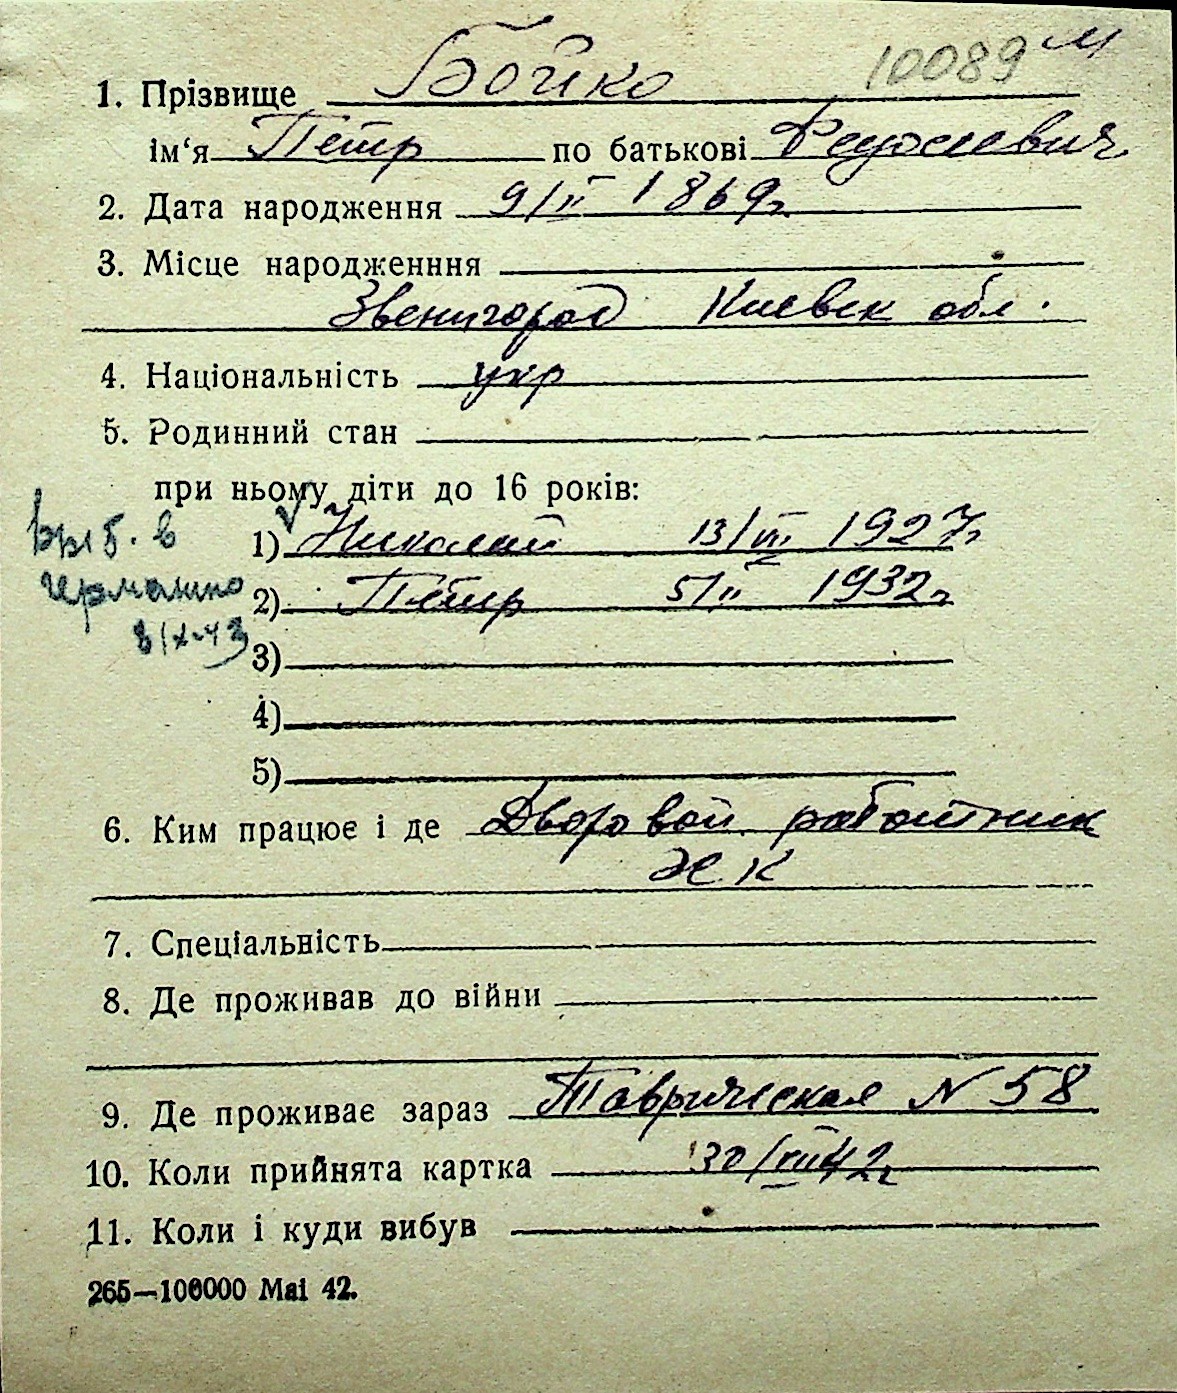 10089 м
1. Прізвище Бойко
ім‘я Петр по батькові Федосиевич
2. Дата народження 9/II 1869г.
3. Місце народженння
Звенигород Киевск обл.
4. Національність укр
5. Родинний стан
при ньому діти до 16 років:
1) Николай 13/VII 1927г
2) Петр 5/II 1932г
выб. в
германию
8/X-43
3)
4)
5)
6. Ким працює і де Дворовой работник
ЖК
7. Спеціальність
8. Де проживав до війни
9. Де проживає зараз Таврическая N 58
10. Коли прийнята картка 30/VII 42г
11. Коли і куди вибув
265—100000 Mai 42.